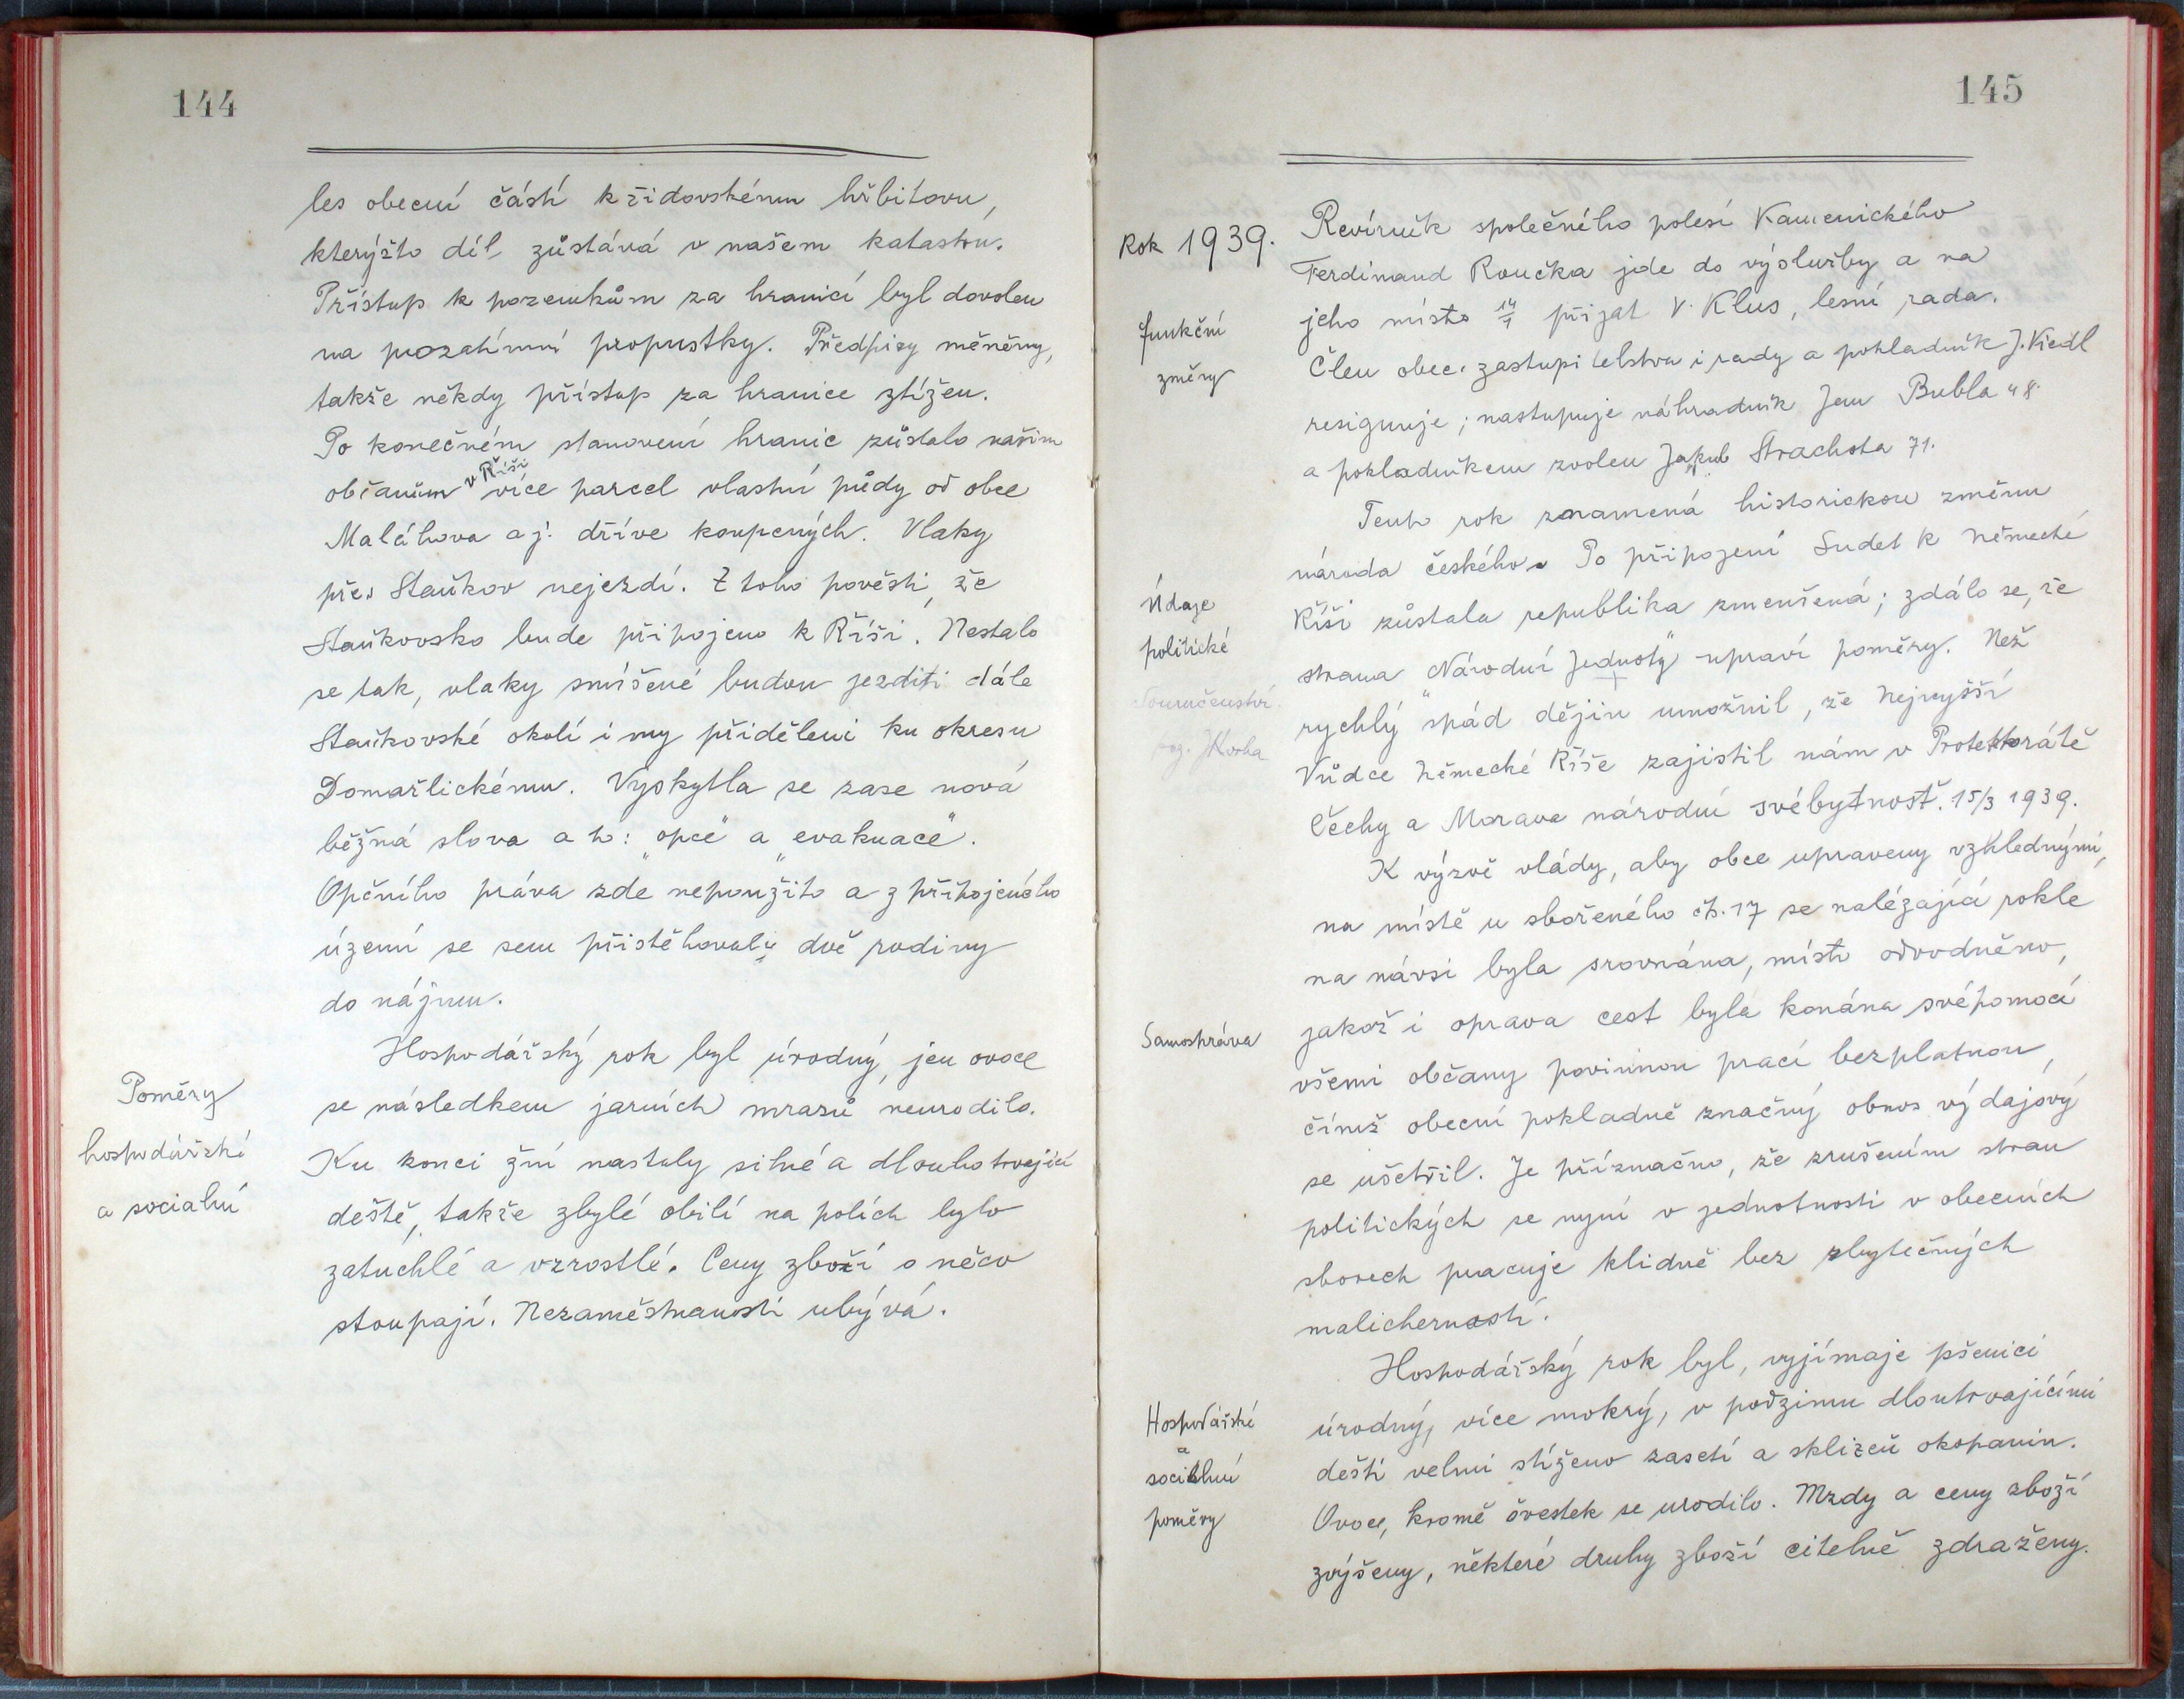 144
les obecní částí k židovskému hřbitovu,
kterýžto díl zůstává v našem katastru.
Přístup k pozemkům za hranicí byl dovolen
na prozatímní propustky. Předpisy měněny,
takže někdy přístup za hranice ztížen.
Po konečném stanovení hranic zůstalo našim
občanům v Říši více parcel vlastní půdy od obce
Maláhova a j. dříve koupených. Vlaky
přes Staňkov nejezdí. Z toho pověsti, že
Staňkovsko bude připojeno k Říši. Nestalo
se tak, vlaky smíšené budou jezditi dále
Staňkovské okolí i my přiděleni ku okresu
Domažlickému. Vyskytla se zase nová
běžná slova a to: „opce" a „evakuace".
Opčního práva zde nepoužito a z připojeného
území se sem přistěhovaly dvě rodiny
do nájmu.
Poměry
hospodářské
a sociální
Hospodářský rok byl úrodný, jen ovoce
se následkem jarních mrazů neurodilo.
Ku konci žní nastaly silné a dlouhotrvající
deště, takže zbylé obilí na polích bylo
zatuchlé a vzrostlé. Ceny zboží o něco
stoupají. Nezaměstnanosti ubývá.
145
Rok 1939.
Revírník společného polesí Kamenického
Ferdinand Roučka jde do výslužby a na
funkční
změny
jeho místo přijat V. Klus, lesní rada.
Člen obec. zastupitelstva i rady a pokladník J. Kiedl
resignuje; nastupuje náhradník Jan Bubla 48.
a pokladníkem zvolen Jakub Strachota 71.
Tento rok znamená historickou změnu
národa českého. Po připojení Sudet k Německé
Údaje
politické
Říši zůstala republika zmenšená; zdálo se, že
strana „Národní Jednoty" upraví poměry. Než
rychlý spád dějin umožnil, že Nejvyšší
Vůdce Německé Říše zajistil nám v Protektorátě
Čechy a Morava národní svébytnost. 15/3 1939.
K výzvě vlády, aby obce upraveny vzhlednými,
na místě u sbořeného čp. 17 se nalézající rokle
na návsi byla srovnána, místo odvodněno,
Samospráva
jakož i oprava cest byla konána svépomocí
všemi občany povinnou prací bezplatnou,
čímž obecní pokladně značný obnos výdajový
se ušetřil. Je příznačno, že zrušením stran
politických se nyní v jednotnosti v obecních
sborech pracuje klidně bez zbytečných
malicherností.
Hospodářské
a
sociální
poměry
Hospodářský rok byl, vyjímaje pšenici
úrodný, více mokrý, v podzimu dloutrvajícími
dešti velmi stíženo zasetí a sklizeň okopanin.
Ovoce, kromě švestek se urodilo. Mzdy a ceny zboží
zvýšeny, některé druhy zboží citelně zdraženy.